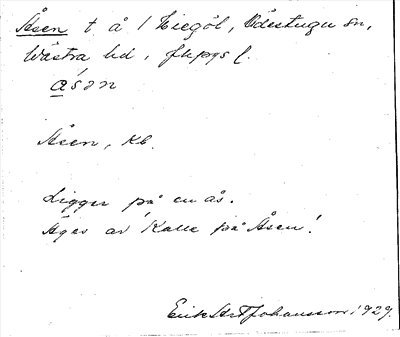 Åsen t å 1 Kiegöl, Ödestugu sn,
Västra hd, Jkpgs l.
åsən
Åsen, kb.
Ligger på en ås.
Äges av "Kalle på Åsen".
Erik Art Johansson 1929.